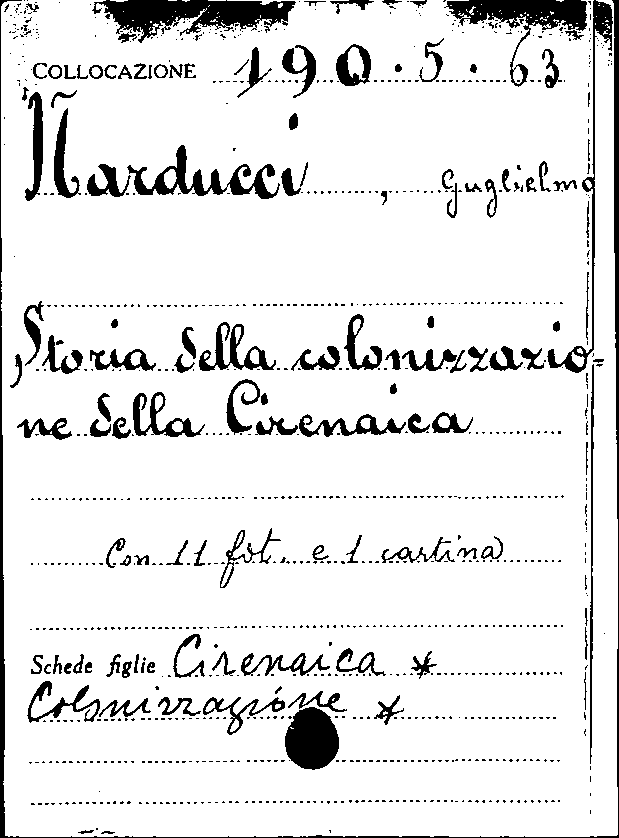 COLLOCAZIONE 190.5.63
Narducci, Guglielmo
Storia della colonizzazio=
ne della Cirenaica
Con 11 fot. e 1 cartina
Schede figlie Cirenaica *
Colonizzazione *